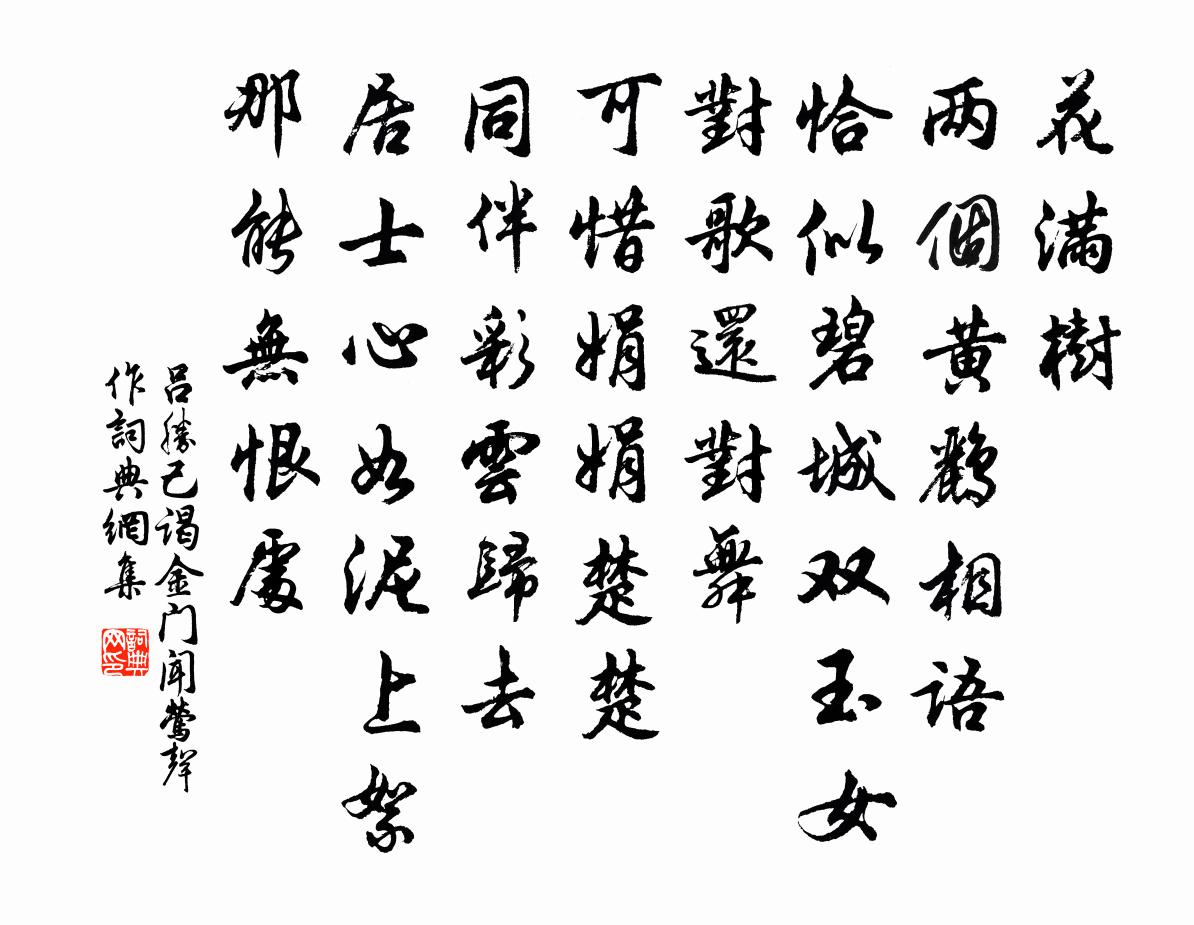 花满樹
两個黄鸝相語
恰似碧城双玉女
對歌還對舞
可惜娟娟楚楚
同伴彩雲歸去
居士心如泥上絮
那能無恨處
吕勝己谒金门闻莺聲
作詞典網集
詞典网印